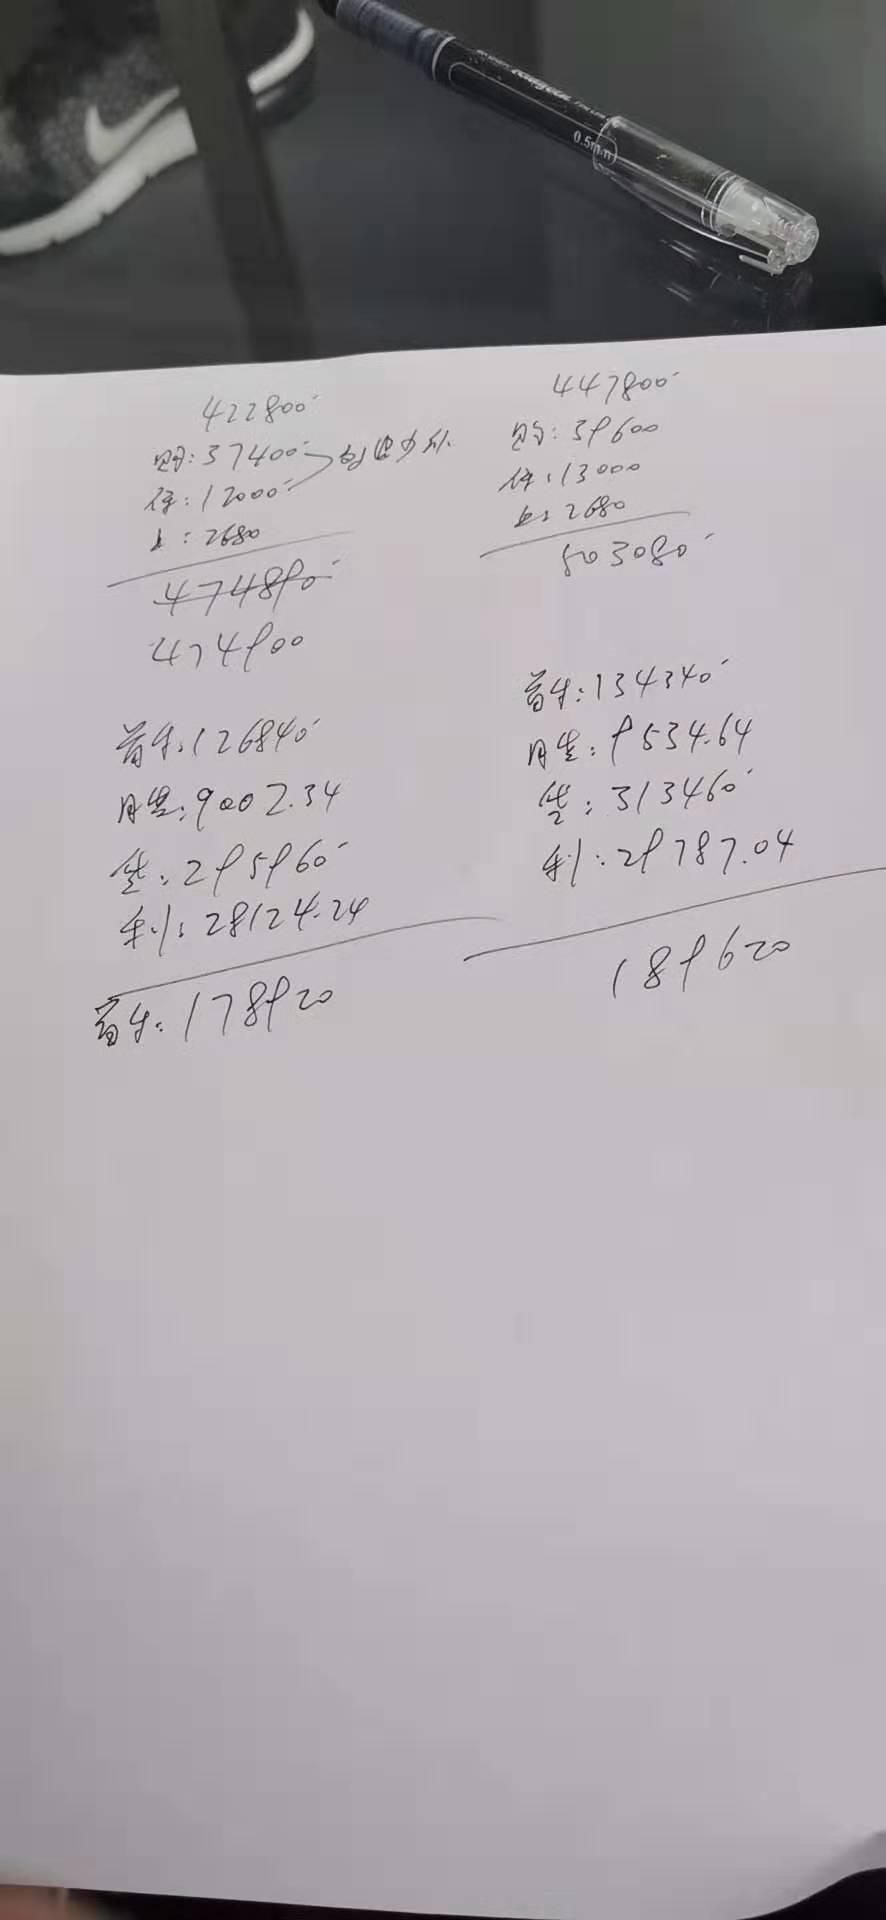 0.5mm
422800
购: 37400
保: 12000
上: 2680
474890
474900
首付: 126840
月供: 9002.34
贷: 295960
利: 28124.24
首付: 178920
447800
购: 39600
保: 13000
上: 2680
503080
首付: 134340
月供: 9534.64
贷: 313460
利: 29787.04
189620